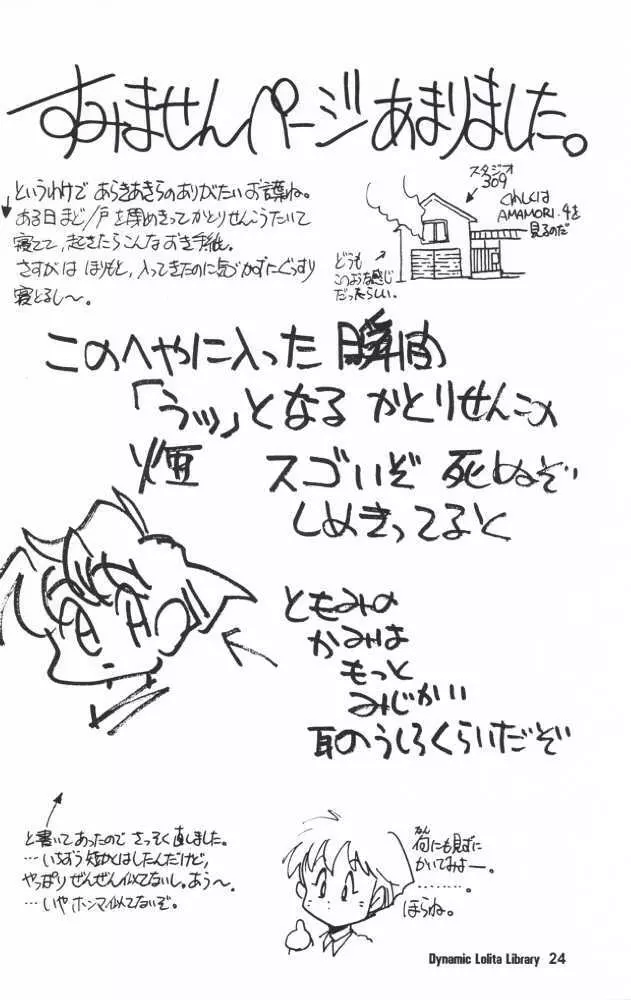 すみませんページあまりました。
というわけであらきあきらのありがたいお言葉ね。
ある日まど/戸を閉めきってかとりせんこうたいて
寝てて、起きたらこんなおき手紙。
さすがは ほりもと、入ってきたのに気づかずにぐっすり
寝とるし〜。
スタジオ
309
くわしくは
AMAMORI.4を
見るのだ
どうも
このような感じ
だったらしい。
このへやに入った 瞬間
「うッ」となる かとりせんこの
煙 スゴいぞ 死ぬぞ
しめきってると
ともみの
かみは
もっと
みじかい
耳のうしろくらいだぞ
と書いてあったので さっそく直しました。
…いちおう短かくはしたんだけど、
やっぱりぜんぜん似てないし。あう〜。
…いや ホンマ似てないぞ。
なん
何にも見ずに
かいてみよー。
………。
ほらね。
Dynamic Lolita Library 24